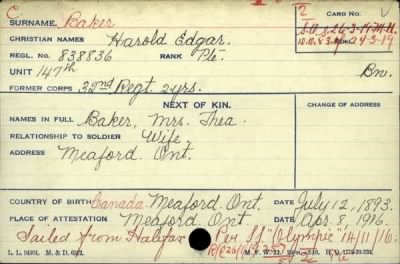 C
SURNAME. Baker
CARD NO.
CHRISTIAN NAMES Harold Edgar.
REGL. NO. 838836 RANK Pte.
UNIT 147th Bn.
FORMER CORPS 32nd Regt. 2yrs.
NEXT OF KIN.
CHANGE OF ADDRESS
NAMES IN FULL Baker, Mrs. Thea.
RELATIONSHIP TO SOLDIER Wife.
ADDRESS Meaford. Ont.
COUNTRY OF BIRTH Canada Meaford. Ont. DATE July 12, 1893.
PLACE OF ATTESTATION Meaford. Ont DATE Apr. 8, 1916.
Sailed from Halifax Per SS "Olympic" 14/11/16.
M. F. W. 22.